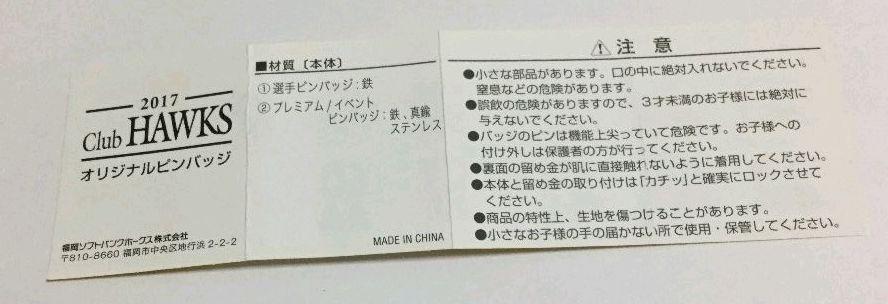 2017
Club HAWKS
オリジナルピンバッジ
福岡ソフトバンクホークス株式会社
〒810-8660 福岡市中央区地行浜 2-2-2
■材質〔本体〕
①選手ピンバッジ：鉄
②プレミアム/イベント
ピンバッジ：鉄、真鍮
ステンレス
MADE IN CHINA
⚠注 意
●小さな部品があります。口の中に絶対入れないでください。
窒息などの危険があります。
●誤飲の危険がありますので、3才未満のお子様には絶対に
与えないでください。
●バッジのピンは機能上尖っていて危険です。お子様への
付け外しは保護者の方が行ってください。
●裏面の留め金が肌に直接触れないように着用してください。
●本体と留め金の取り付けは「カチッ」と確実にロックさせて
ください。
●商品の特性上、生地を傷つけることがあります。
●小さなお子様の手の届かない所で使用・保管してください。